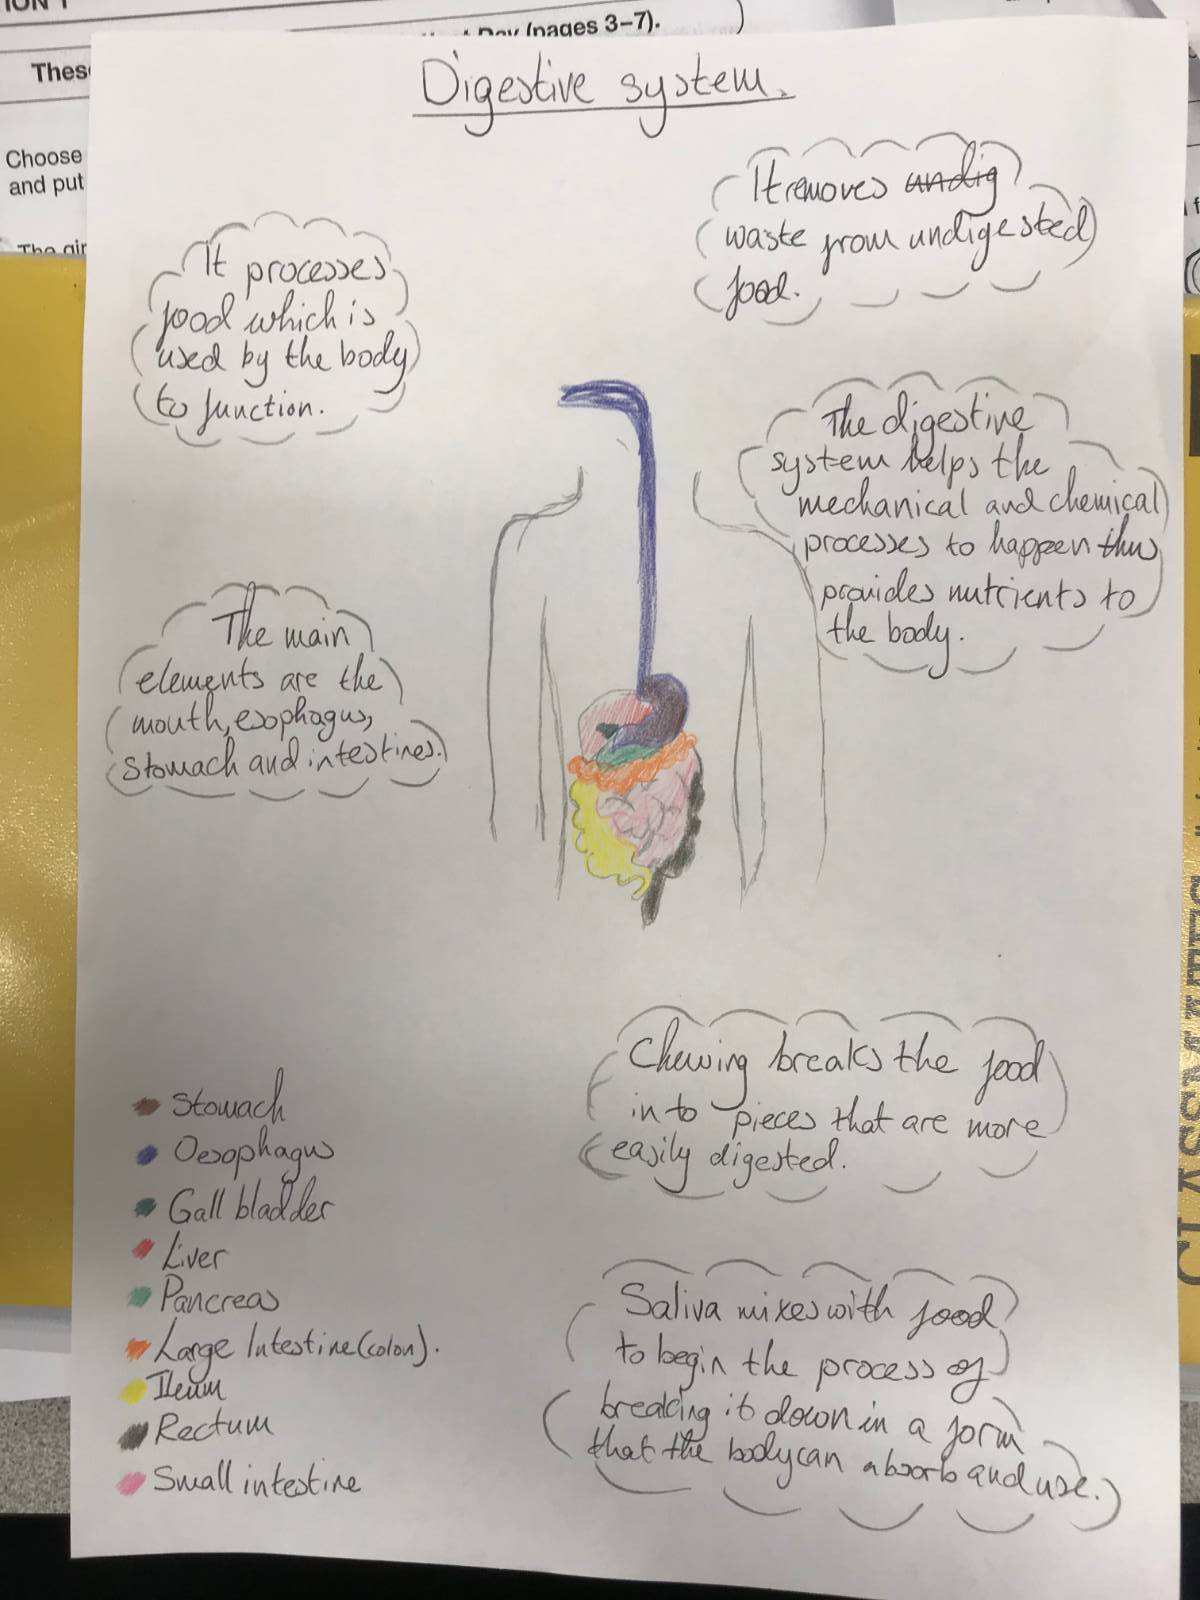 ION 1
Day (pages 3–7).
These
Choose
and put
Digestive system.
It removes undig
waste from undigested
food.
It processes
food which is
used by the body
to function.
The digestive
system helps the
mechanical and chemical
processes to happen thus
provides nutrients to
the body.
The main
elements are the
mouth, esophagus,
stomach and intestines.
Chewing breaks the food
into pieces that are more
easily digested.
Stomach
Oesophagus
Gall bladder
Liver
Pancreas
Large Intestine (colon).
Ileum
Rectum
Small intestine
Saliva mixes with food
to begin the process of
breaking it down in a form
that the body can absorb and use.